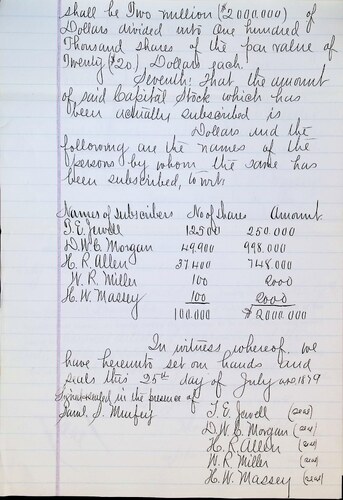 shall be Two million ($2000.000) of
Dollars divided into one hundred
Thousand shares of the par value of
Twenty ($20), Dollars each.
Seventh: That the amount
of said Capital Stock which has
been actually subscribed is
Dollars and the
following are the names of the
persons by whom the same has
been subscribed, to wit:
Names of subscribers No of shares Amount.
T. E. Jewell 12500 250.000
D. W. C. Morgan 49,900 998.000
H. R. Allen 37400 748.000
W. R. Miller 100 2000
H. W. Massey 100 2000
100.000 $2000.000
In witness whereof we
have hereunto set our hands and
seals this 25th day of July A.D. 1879
Signed & sealed in the presence of
Saml. S. T. E. Jewell (seal)
D. W. C. Morgan (seal)
H. R. Allen (seal)
W. R. Miller (seal)
H. W. Massey (seal)